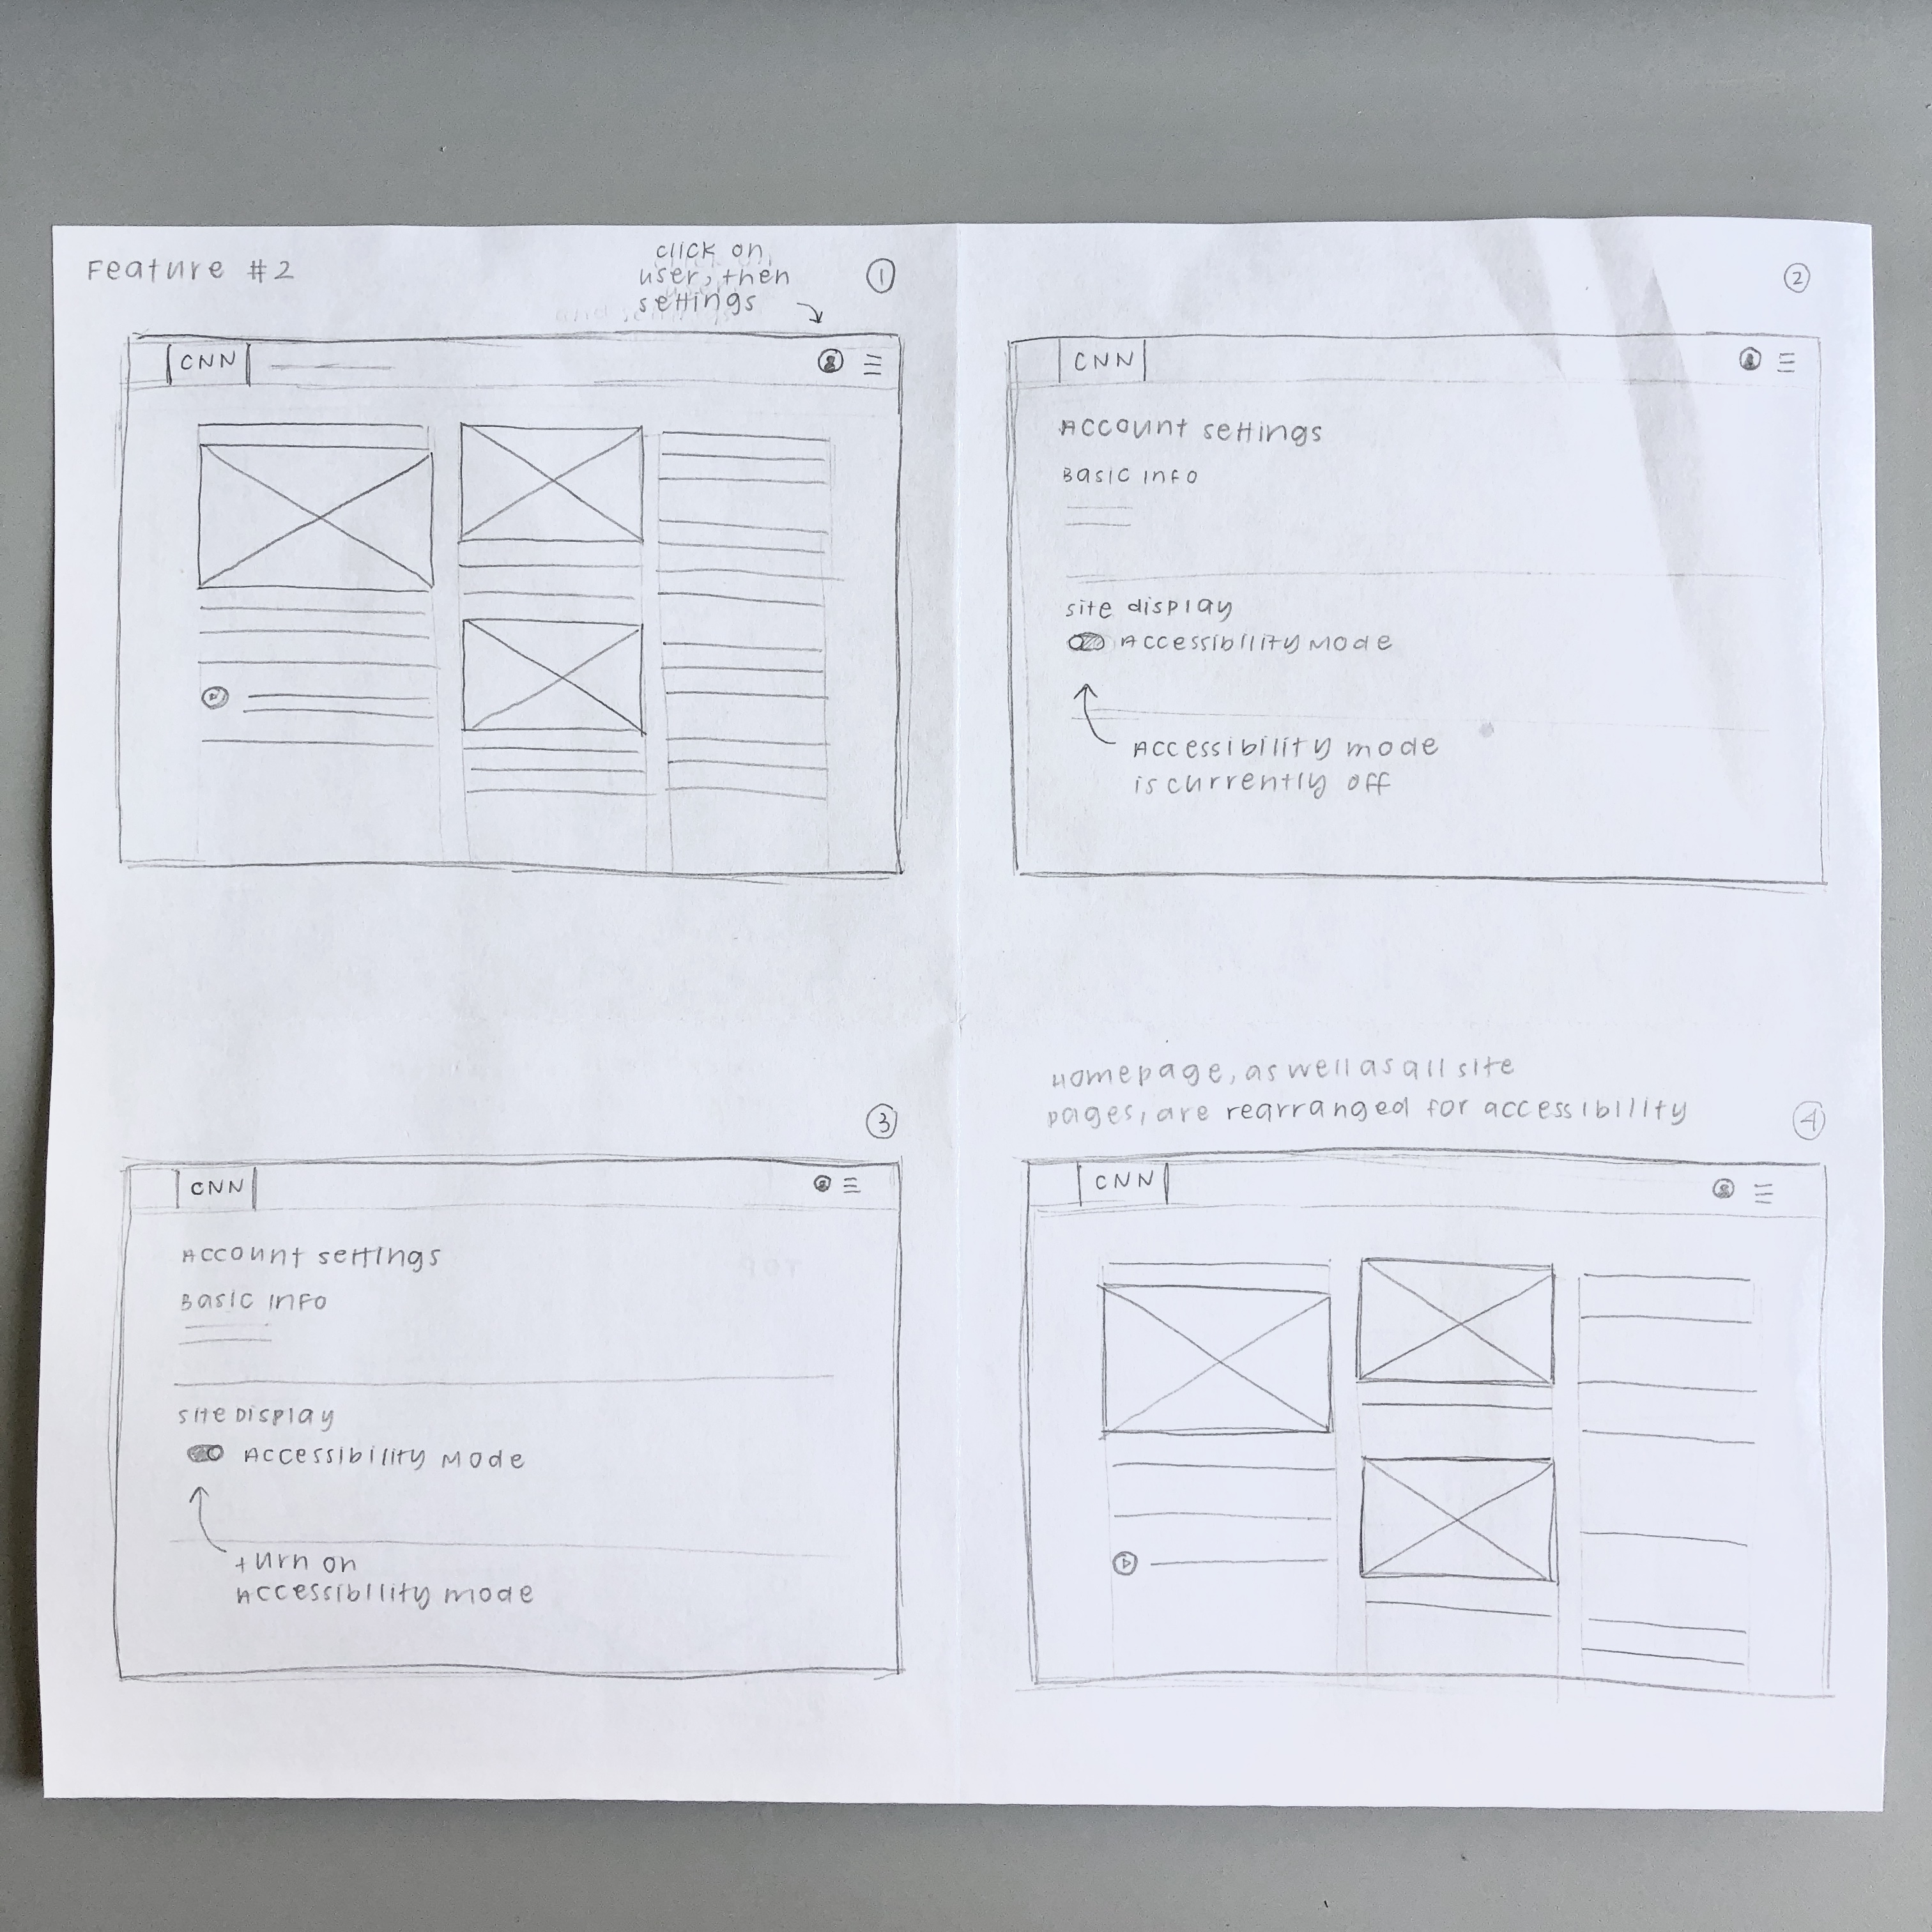 Feature #2
click on
user, then
settings
1
CNN
2
CNN
Account settings
Basic info
site display
Accessibility Mode
Accessibility mode
is currently off
3
CNN
Account settings
Basic info
Site Display
Accessibility Mode
turn on
Accessibility mode
Homepage, as well as all site
pages, are rearranged for accessibility
4
CNN